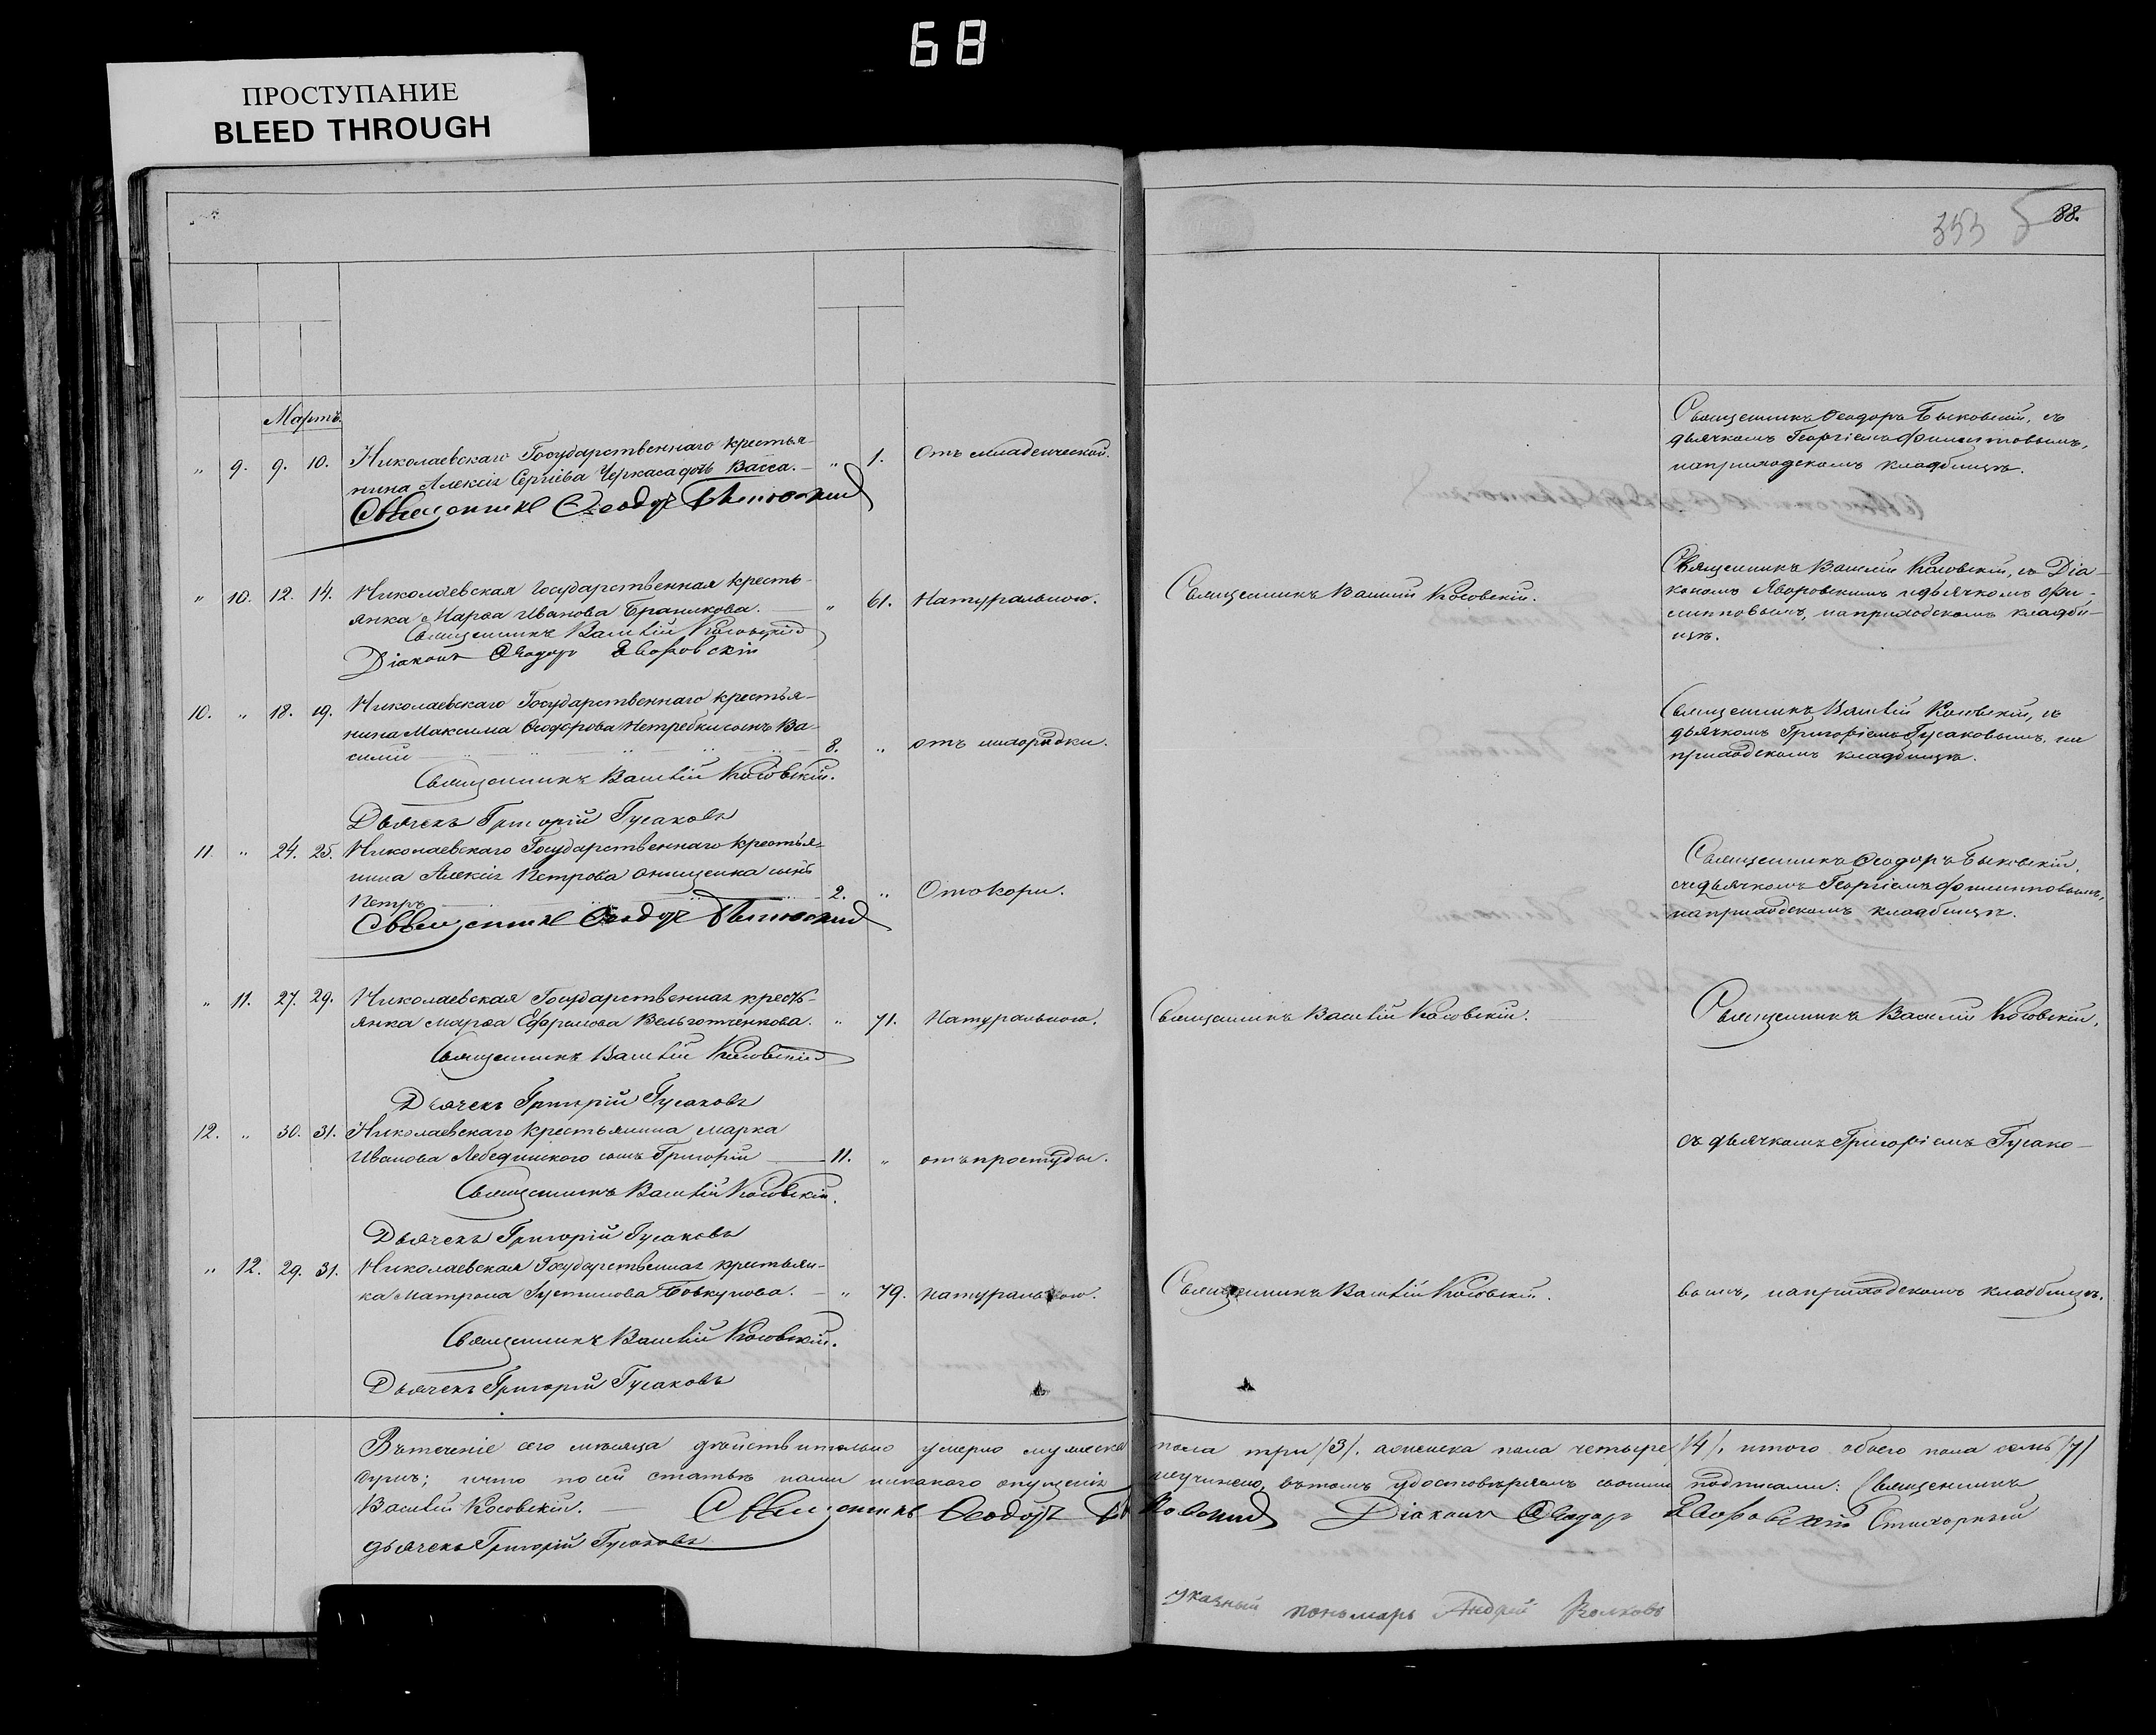 68
ПРОСТУПАНИЕ
BLEED THROUGH
353 88.
Мартъ.
" 9. 9. 10. Николаевскаго Государственнаго крестья-
нина Алексія Сергіева Черкаса дочь Васса. " 1. Отъ младенческой.
Священникъ Ѳеодоръ Быковскій, съ
дьячкомъ Георгіемъ Филипповымъ,
на приходскомъ кладбищѣ.
Священникъ Ѳеодоръ Быковскій
" 10. 12. 14. Николаевская Государственная кресть-
янка Марѳа Иванова Браникова. " 61. Натуральною.
Священникъ Василій Косовскій.
Священникъ Василій Косовскій, съ Діа-
кономъ Яворовскимъ и дьячкомъ Фи-
липповымъ, на приходскомъ кладби-
щѣ.
Священникъ Василій Косовскій
Діаконъ Ѳеодоръ Яворовскій
10. " 18. 19. Николаевскаго Государственнаго крестья-
нина Максима Ѳеодорова Нетребки сынъ Ва-
силій 8. " отъ лихорадки.
Священникъ Василій Косовскій, съ
дьячкомъ Григоріемъ Гусаковымъ, на
приходскомъ кладбищѣ.
Священникъ Василій Косовскій.
Дьячекъ Григорій Гусаковъ
11. " 24. 25. Николаевскаго Государственнаго крестья-
нина Алексія Петрова Онищенка сынъ
Петръ 2. " Отъ кори.
Священникъ Ѳеодоръ Быковскій,
съ дьячкомъ Георгіемъ Филипповымъ,
на приходскомъ кладбищѣ.
Священникъ Ѳеодоръ Быковскій
" 11. 27. 29. Николаевская Государственная кресть-
янка Марѳа Ефремова Вельготченкова. " 71. Натуральною.
Священникъ Василій Косовскій.
Священникъ Василій Косовскій,
Священникъ Василій Косовскій
Дьячекъ Григорій Гусаковъ
12. " 30. 31. Николаевскаго крестьянина Марка
Иванова Лебединского сынъ Григорій 11. " отъ простуды.
съ дьячкомъ Григоріемъ Гусако-
Священникъ Василій Косовскій.
Дьячекъ Григорій Гусаковъ
" 12. 29. 31. Николаевская Государственная крестьян-
ка Матрона Устинова Бовкунова. " 79. натуральною.
Священникъ Василій Косовскій.
вымъ, на приходскомъ кладбищѣ.
Священникъ Василій Косовскій.
Дьячекъ Григорій Гусаковъ
Въ теченіе сего мѣсяца дѣйствительно умерло мужеска пола три /3/. а женска пола четыре /4/, итого обоего пола семь /7/
душъ; и что по сей статьѣ нами никакого опущенія неучинено, въ томъ удостовѣряемъ своими подписами: Священникъ
Василій Косовскій. Священникъ Ѳеодоръ Быковскій Діаконъ Ѳеодоръ Яворовскій Стихарный
дьячекъ Григорій Гусаковъ
указный пономарь Андрей Волковъ